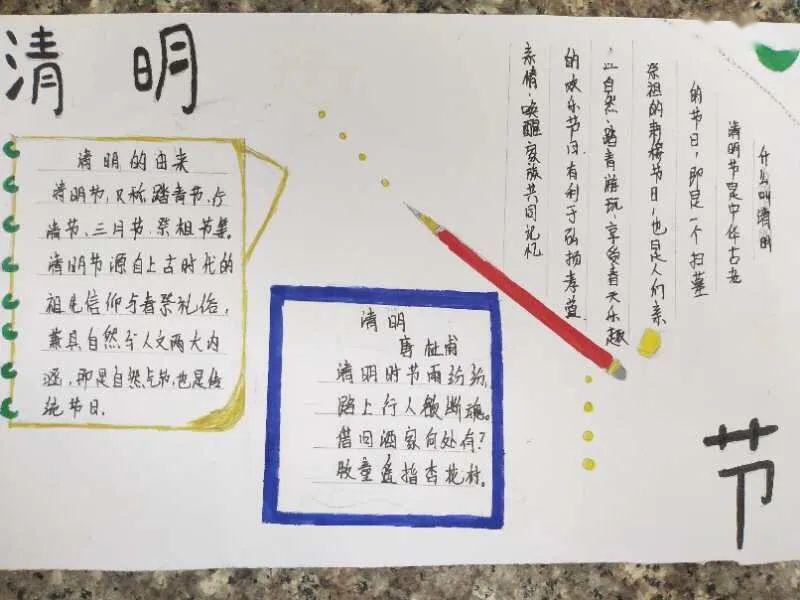 清 明
节
清明的由来
清明节,又称踏青节、行
清节、三月节、祭祖节等。
清明节源自上古时代的
祖先信仰与春祭礼俗,
兼具自然与人文两大内
涵,即是自然节,也是传
统节日.
清明
唐 杜甫
清明时节雨纷纷,
路上行人欲断魂。
借问酒家何处有?
牧童遥指杏花村。
什么叫清明
清明节是中华古老
的节日,即是一个扫墓
祭祖的肃穆节日,也是人们亲
近自然、踏青游玩、享受春天乐趣
的欢乐节日,有利于弘扬孝道
亲情、唤醒家族共同记忆